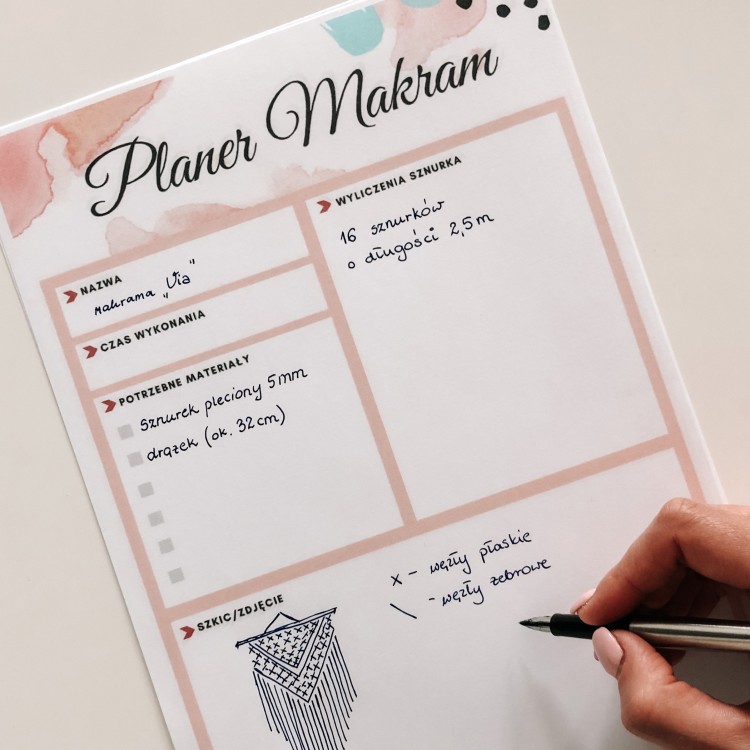 Planer Makram
NAZWA
Makrama „Via"
CZAS WYKONANIA
POTRZEBNE MATERIAŁY
sznurek pleciony 5mm
drążek (ok. 32cm)
WYLICZENIA SZNURKA
16 sznurków
o długości 2,5m
SZKIC/ZDJĘCIE
x - węzły płaskie
\ - węzły żebrowe